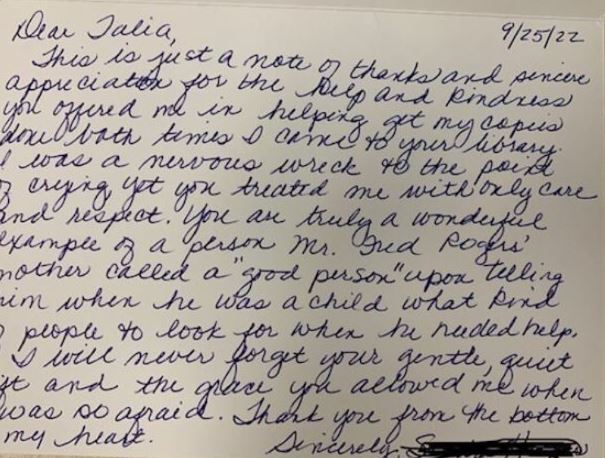 Dear Talia, 9/25/22
This is just a note of thanks and sincere
appreciation for the help and kindness
you offered me in helping get my copies
done both times I came to your library.
I was a nervous wreck to the point
of crying, yet you treated me with only care
and respect. You are truly a wonderful
example of a person Mr. Fred Rogers'
mother called a "good person" upon telling
him when he was a child what kind
people to look for when he needed help.
I will never forget your gentle, quiet
and the grace you allowed me when
was so afraid. Thank you from the bottom
my heart.
Sincerely,